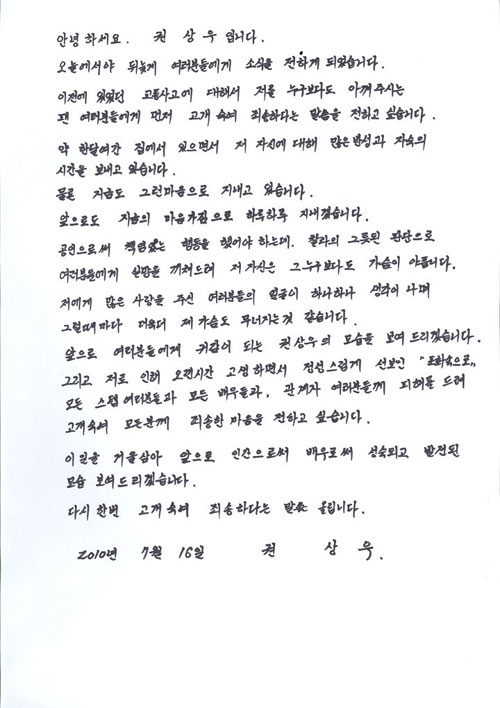 안녕하세요. 권상우입니다.
오늘에서야 뒤늦게 여러분들에게 소식을 전하게 되었습니다.
이전에 있었던 교통사고에 대해서 저를 누구보다도 아껴주시는
팬 여러분들에게 먼저 고개숙여 죄송하다는 말씀을 전하고 싶습니다.
약 한달여간 집에서 있으면서 저 자신에 대해 많은 반성과 자숙의
시간을 보내고 있습니다.
물론 지금도 그런마음으로 지내고 있습니다.
앞으로도 지금의 마음가짐으로 하루하루 지내겠습니다.
공인으로써 책임있는 행동을 했어야 하는데. 찰라의 그릇된 판단으로
여러분들에게 실망을 끼쳐드려 저 자신은 그 누구보다도 가슴이 아픕니다.
저에게 많은 사랑을 주신 여러분들의 얼굴이 하나하나 생각이 나며
그럴때마다 더욱더 제 가슴도 무너지는것 같습니다.
앞으로 여러분들에게 귀감이 되는 권상우의 모습을 보여 드리겠습니다.
그리고 저로 인해 오랜시간 고생하면서 정성스럽게 선보인 "포화속으로"
모든 스텝여러분들과 모든 배우들과, 관계자 여러분들께 피해를 드려
고개숙여 모든분께 죄송한 마음을 전하고 싶습니다.
이 일을 거울삼아 앞으로 인간으로써 배우로써 성숙되고 발전된
모습 보여드리겠습니다.
다시한번 고개숙여 죄송하다는 말씀 올립니다.
2010년 7월 16일 권 상 우.